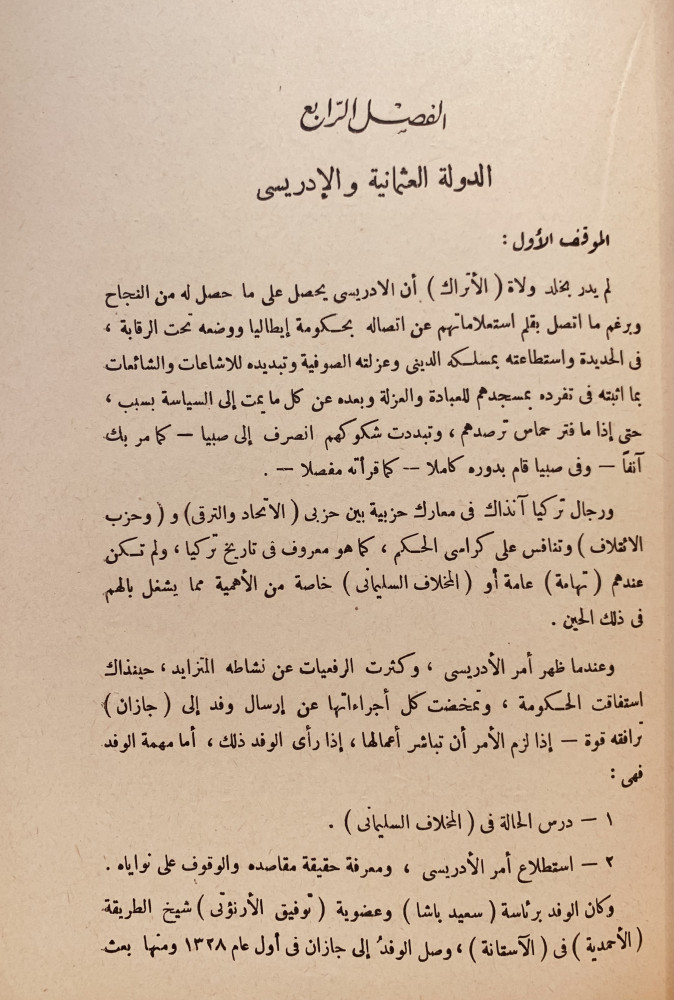 الفصل الرابع
الدولة العثمانية والإدريسى
الموقف الأول :
لم يدر بخلد ولاة ( الأتراك ) أن الادريسى يحصل على ما حصل له من النجاح
وبرغم ما اتصل بقلم استعلاماتهم عن اتصاله بحكومة إيطاليا ووضعه تحت الرقابة ،
فى الحديدة واستطاعته بمسلكه الدينى وعزلته الصوفية وتبديده للاشاعات والشائعات
بما اثبته فى تفرده بمسجدهم للعبادة والعزلة وبعده عن كل ما يمت إلى السياسة بسبب ،
حتى إذا ما فتر حماس ترصدهم ، وتبددت شكوكهم انصرف إلى صبيا — كما مر بك
آنفاً — وفى صبيا قام بدوره كاملا — كما قرأته مفصلا — .
ورجال تركيا آنذاك فى معارك حزبية بين حزبى ( الاتحاد والترقى ) و ( وحزب
الائتلاف ) وتنافس على كراسى الحكم ، كما هو معروف فى تاريخ تركيا ، ولم تكن
عندهم ( تهامة ) عامة أو ( المخلاف السليمانى ) خاصة من الأهمية مما يشغل بالهم
فى ذلك الحين .
وعندما ظهر أمر الأدريسى ، وكثرت الرفعيات عن نشاطه المتزايد ، حينذاك
استفاقت الحكومة ، وتمخضت كل أجراءاتها عن إرسال وفد إلى ( جازان )
ترافقه قوة — إذا لزم الأمر أن تباشر أعمالها ، إذا رأى الوفد ذلك ، أما مهمة الوفد
فهى :
١ — درس الحالة فى ( المخلاف السليمانى ) .
٢ — استطلاع أمر الأدريسى ، ومعرفة حقيقة مقاصده والوقوف على نواياه .
وكان الوفد برئاسة ( سعيد باشا ) وعضوية ( توفيق الأرنؤتى ) شيخ الطريقة
( الأحمدية ) فى ( الآستانة ) ، وصل الوفدُ إلى جازان فى أول عام ١٣٢٨ ومنها بعث